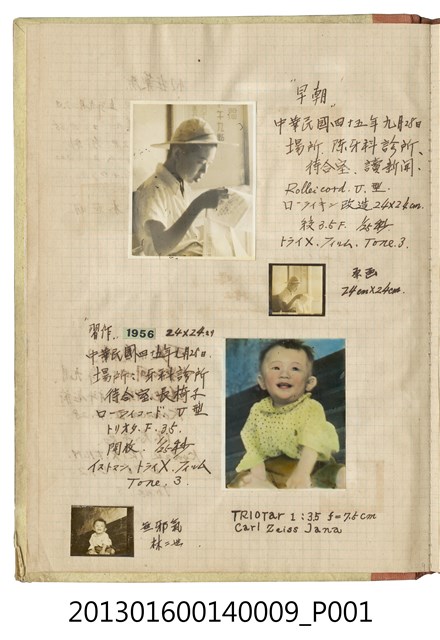 "早朝"
中華民國四十五年九月25日
場所、陳牙科診所、
待合室、讀新聞.
Rolleicord. V. 型.
ローライキン 改造 24×24cm.
鏡 3.5 F.
トライX. フィルム. Tone. 3.
原画
24cm×24cm.
習作. 1956 24×24
中華民國四十五年九月25日.
場所、陳牙科診所
待合室、長椅子
ローライコード. V 型
トリオタ. F. 3.5.
開放.
イストマン、トライX. フィルム
Tone. 3.
無邪気
TRIOTar 1:3.5 f=7.5cm
Carl Zeiss Jana
201301600140009_P001